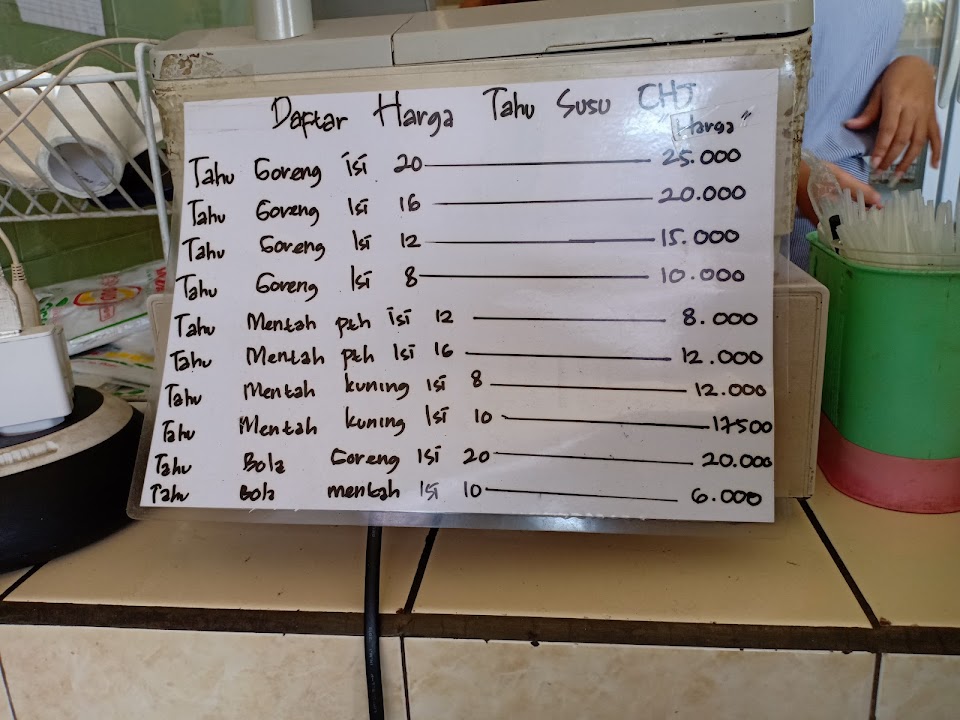 Daftar Harga Tahu Susu CHJ
"Harga"
Tahu Goreng isi 20 25.000
Tahu Goreng Isi 16 20.000
Tahu Goreng Isi 12 15.000
Tahu Goreng Isi 8 10.000
Tahu Mentah pth isi 12 8.000
Tahu Mentah pth Isi 16 12.000
Tahu Mentah kuning isi 8 12.000
Tahu Mentah kuning Isi 10 17500
Tahu Bola Goreng Isi 20 20.000
Tahu Bola mentah Isi 10 6.000